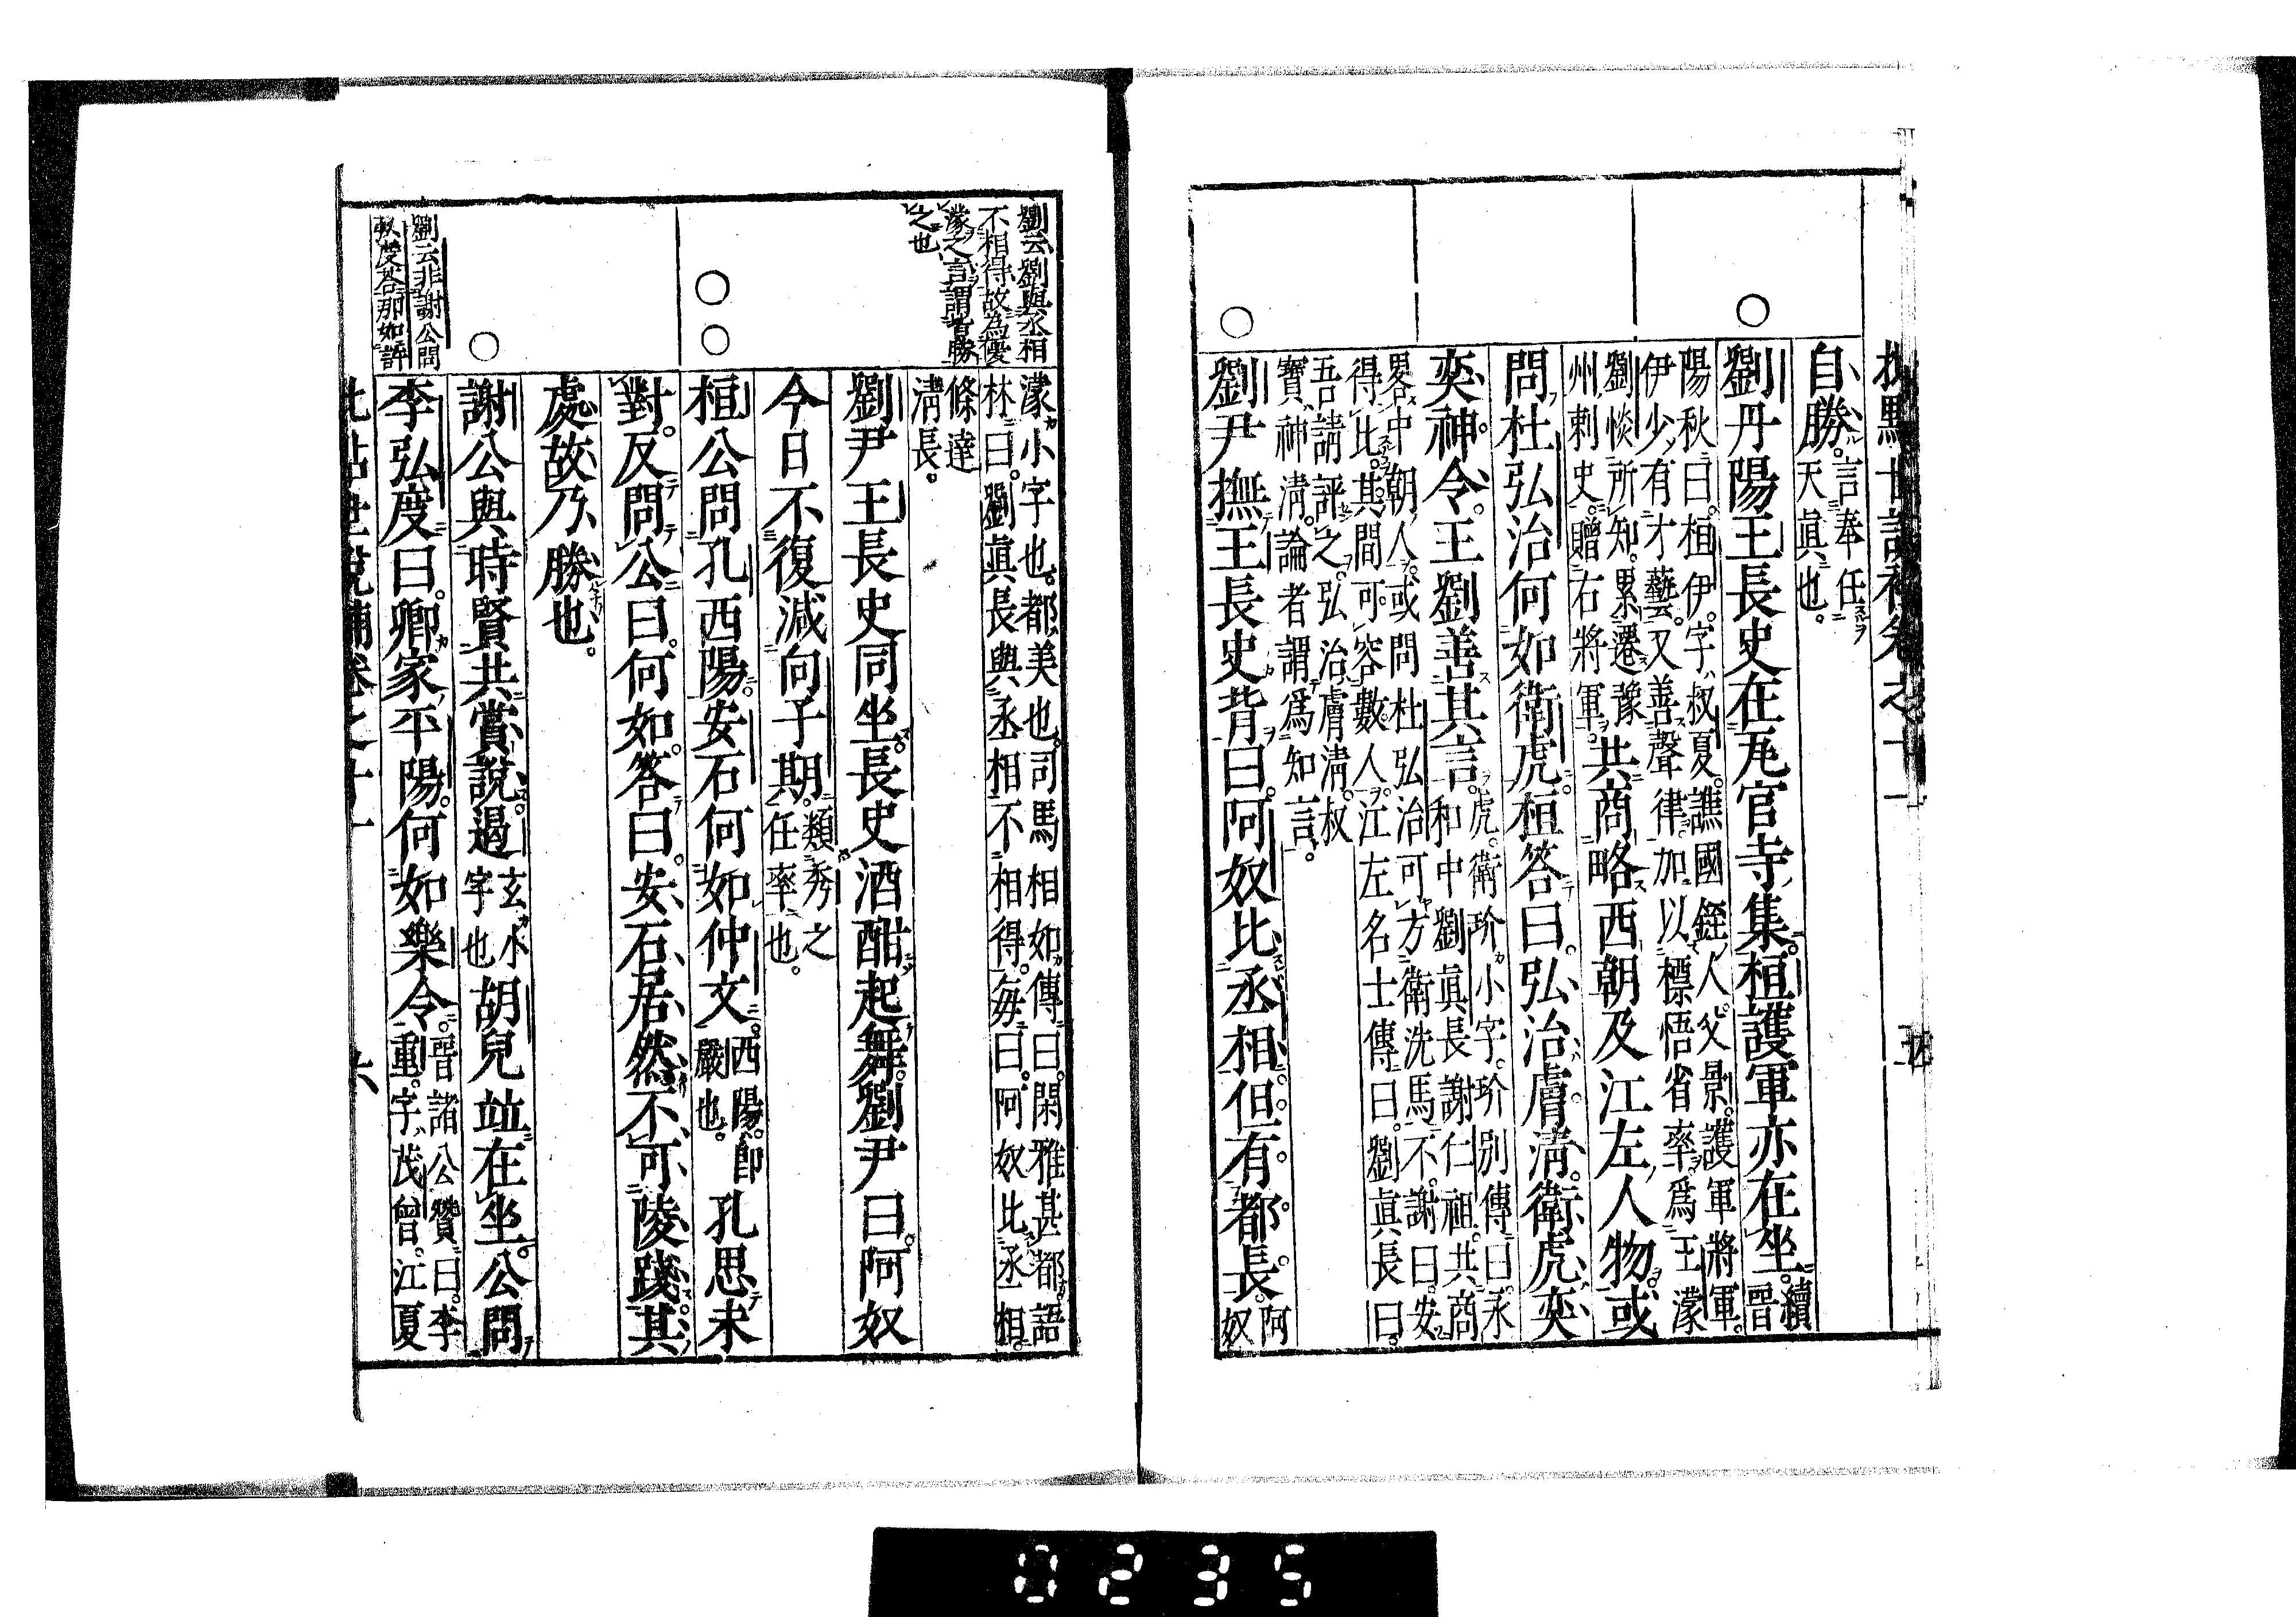 自勝。言奉任
天眞也。
劉丹陽王長史在瓦官寺集。桓護軍亦在坐。續晉
陽秋曰。桓伊。字叔夏。譙國銍人。父景。護軍將軍。
伊少有才藝。又善聲律。加以標悟省率。爲王濛
劉惔所知。累遷豫
州刺史。贈右將軍。
共商略西朝及江左人物。或
問杜弘治何如衛虎。桓答曰。弘治膚淸。衛虎奕
奕神令。王劉善其言。
虎。衛玠小字。玠別傳曰。永
和中劉眞長謝仁祖。共商
畧中朝人。或問杜弘治可方衛洗馬不。謝曰。安
得比。其間可容數人。江左名士傳曰。劉眞長曰。
吾請評之。弘治膚淸。叔
寶神淸。論者謂爲知言。
劉尹撫王長史背曰。阿奴比丞相。但有都長。
阿奴
濛小字也。都美也。司馬相如傳曰。閑雅甚都。語
林曰。劉眞長與丞相不相得。每曰。阿奴比丞相。
條達
淸長。
劉尹王長史同坐。長史酒酣起舞。劉尹曰。阿奴
今日不復減向子期。
類秀之
任率也。
桓公問孔西陽。安石何如仲文。
西陽。卽
嚴也。
孔思未
對。反問公曰。何如。答曰。安石居然不可陵踐其
處。故乃勝也。
謝公與時賢共賞說。遏
玄小
字也
胡兒竝在坐。公問
李弘度曰。卿家平陽。何如樂令。
晉諸公贊曰。李
重。字茂曾。江夏
劉云劉與丞相
不相得故為優
濛之言謂皆勝
之也
劉云非謝公問
六
0235